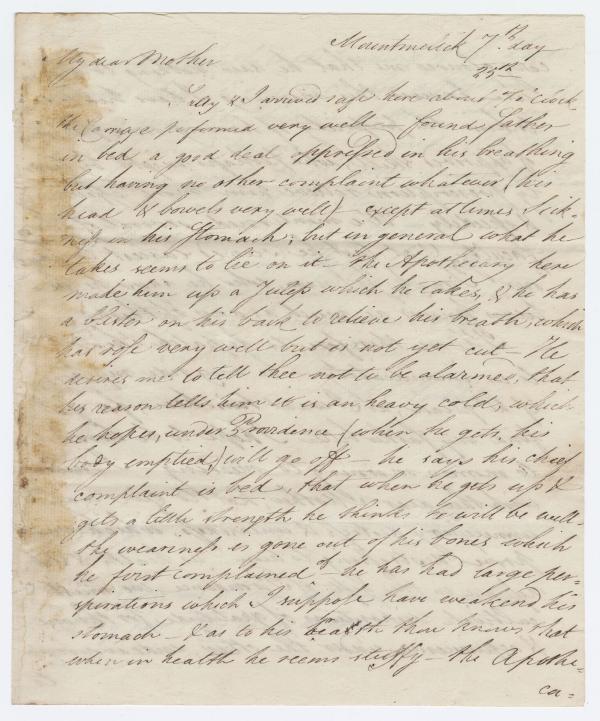 Mountmelick 7th day
25th
My dear Mother
& I arrived safe here about 7 o'clock
the Carriage performed very well — found Father
in bed, a good deal oppressed in his breathing
but having no other complaint whatever (his
head & bowels very well) — except at times sick-
ness in his stomach, but in general what he
takes seems to lie on it — the Apothecary here
made him up a Julep which he takes, & he has
a blister on his back to relieve his breath, which
has rose very well but is not yet cut — He
desires me to tell thee not to be alarmed, that
his reason tells him it is an heavy cold, which
he hopes, under Providence (when he gets his
body emptied,) will go off — he says his chief
complaint is bed, that when he gets up &
gets a little strength he thinks he will be well —
the weariness is gone out of his bones which
he first complained of — he has had large per-
spirations which I suppose have weakend his
stomach — & as to his breath thou knows that
when in health he seems stuffy — the Apothe-
ca-